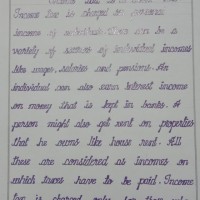 Income tax is charged on personal
income of individuals. There can be a
variety of sources of individual incomes
like wages, salaries and pensions. An
individual can also earn interest income
on money that is kept in banks. A
person might also get rent on properties
that he owns like house rent. All
these are considered as incomes on
which taxes have to be paid. Income
tax is charged only